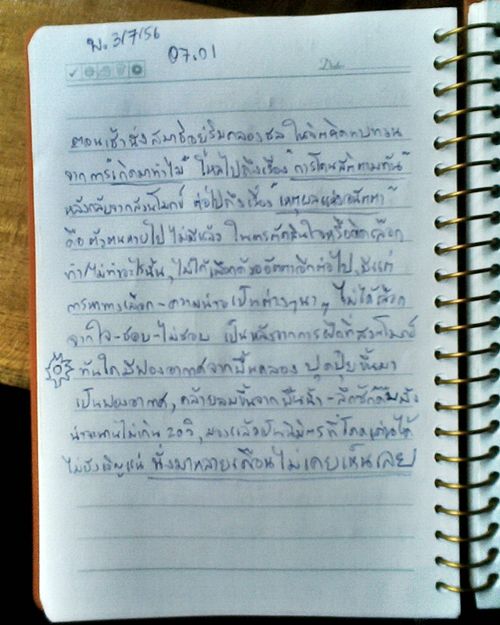 พ. 3/7/56
07.01
ตอนเช้านั่งสมาธิอยู่ริมคลองชล ในจิตคิดทบทวน
จากการ "เกิดมาทำไม" ไหลไปถึงเรื่อง "การโดนสักตามทัน"
หลังกลับจากสวนโมกข์ ต่อไปถึงเรื่อง "เหตุผลแห่งอนัตตา"
คือตัวตนหายไป ไม่มีแล้ว ในการตัดสินใจหรือจิตเลือก
ทำ/ไม่ทำอะไรนั้น, ไม่ได้เลือกด้วยอัตตาอีกต่อไป, มีแต่
การหาทางเลือก - ความน่าจะเป็นต่างๆนาๆ ไม่ได้เลือก
จากใจ-ชอบ-ไม่ชอบ เป็นหลังจากการฝึกที่สวนโมกข์
ทันใดมีฟองอากาศจากพื้นคลอง ปุดปุดขึ้นมา
เป็นฟองอากาศ, คล้ายลมขึ้นจากพื้นน้ำ - ลึกซัก
น่าจะนานไม่เกิน 20 วิ,
ไม่บังเอิญแน่ นั่งมาหลายเดือนไม่เคยเห็นเลย